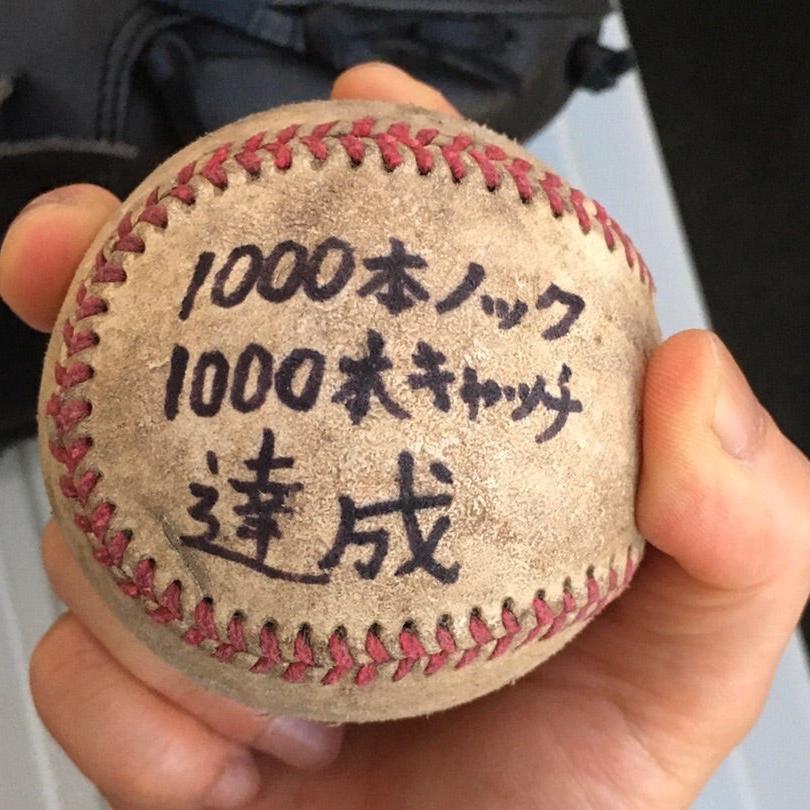 1000本ノック
1000本キャッチ
達成